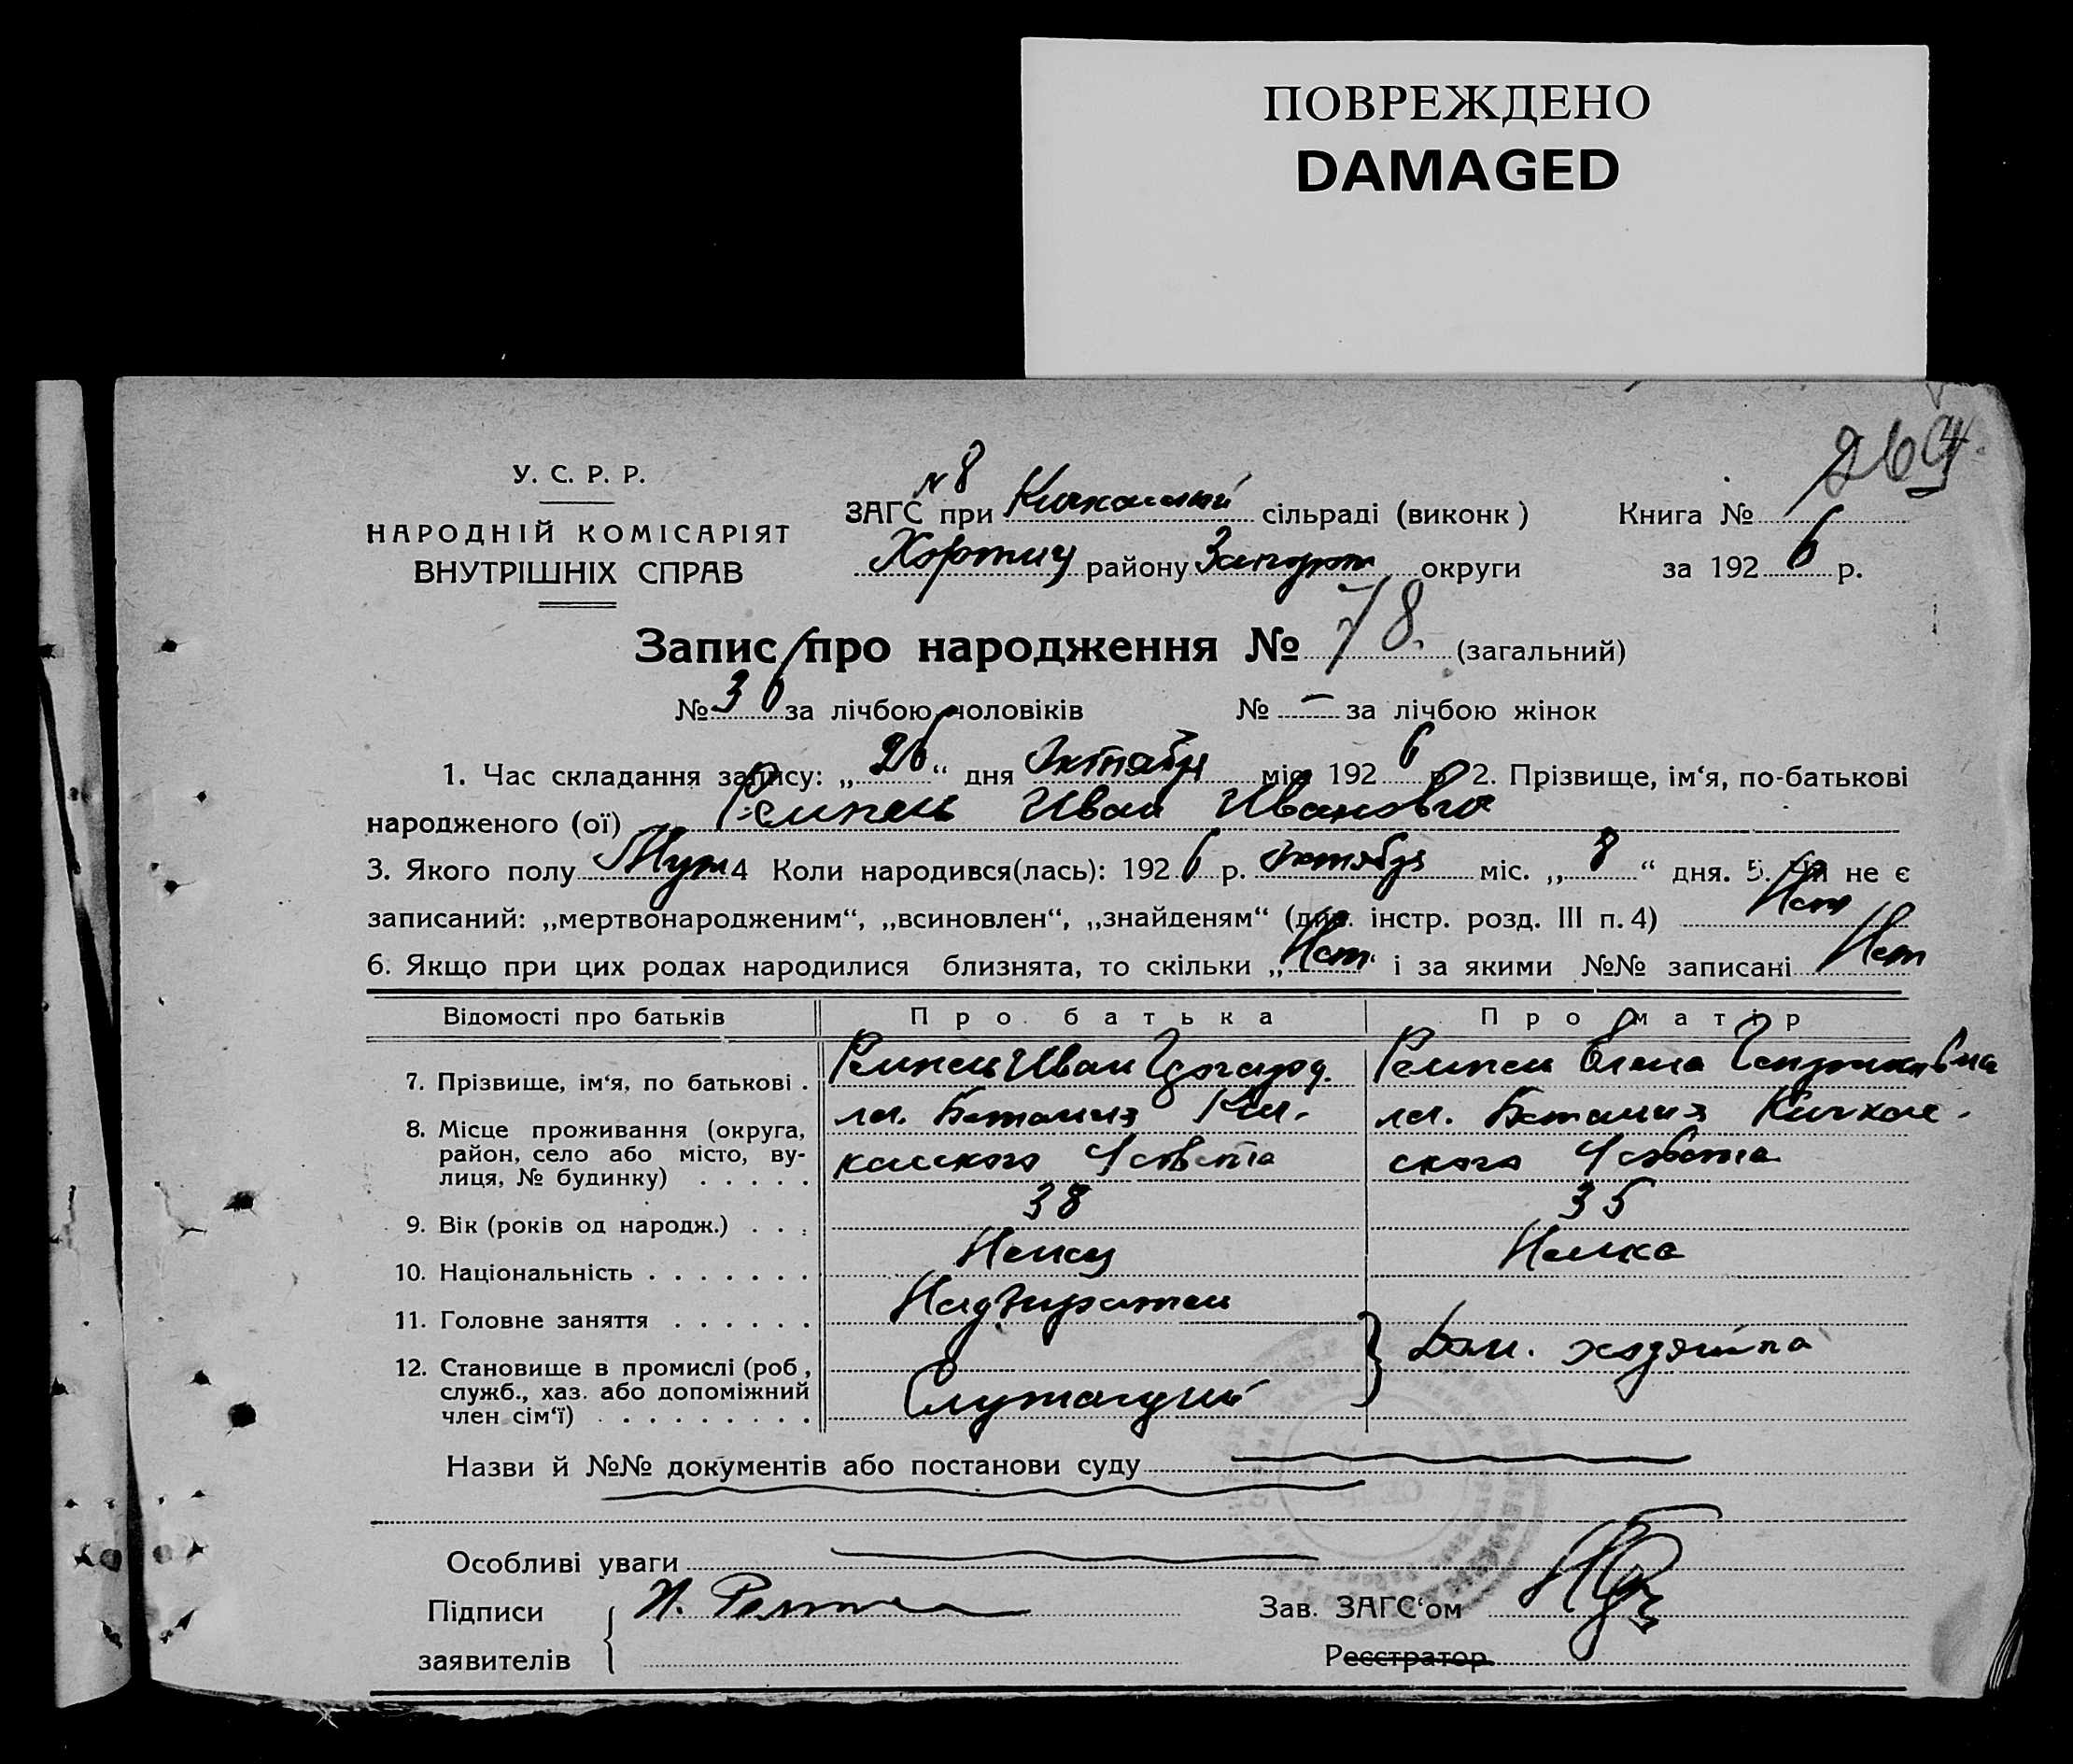 ПОВРЕЖДЕНО
DAMAGED
264.
У. С. Р. Р.
НАРОДНІЙ КОМІСАРІЯТ
ВНУТРІШНІХ СПРАВ
N 8
ЗАГС при Кичкасский сільраді (виконк)
Хортиц району Запорож округи
Книга №
за 1926 р.
Запис про народження № 78. (загальний)
№ 36 за лічбою чоловіків № – за лічбою жінок
1. Час складання запису: „26“ дня Октября міс. 1926 р. 2. Прізвище, ім‘я, по-батькові
народженого (ої) Ремпель Иван Иванович
3. Якого полу Муж 4 Коли народився(лась): 1926 р. октября міс. „8“ дня. 5. Чи не є
записаний: „мертвонародженим“, „всиновлен“, „знайденям“ (див. інстр. розд. III п. 4) Нет
6. Якщо при цих родах народилися близнята, то скільки „Нет“ і за якими №№ записані Нет
Відомості про батьків Про батька Про матір
7. Прізвище, ім‘я, по батькові . Ремпель Иван Ремпель Елена Генриховна
8. Місце проживання (округа, район, село або місто, вулиця, № будинку) . . . . .
9. Вік (років од народж.) . . . 38 35
10. Національність . . . . . . . Немец Немка
11. Головне заняття . . . . . . Надзиратель
12. Становище в промислі (роб, служб., хаз. або допоміжний член сім‘ї) . . . . . . . . . Служащий Дом. хозяйка
Назви й №№ документів або постанови суду
Особливі уваги
Підписи
заявителів
И. Ремпель
Зав. ЗАГС‘ом
Реєстратор